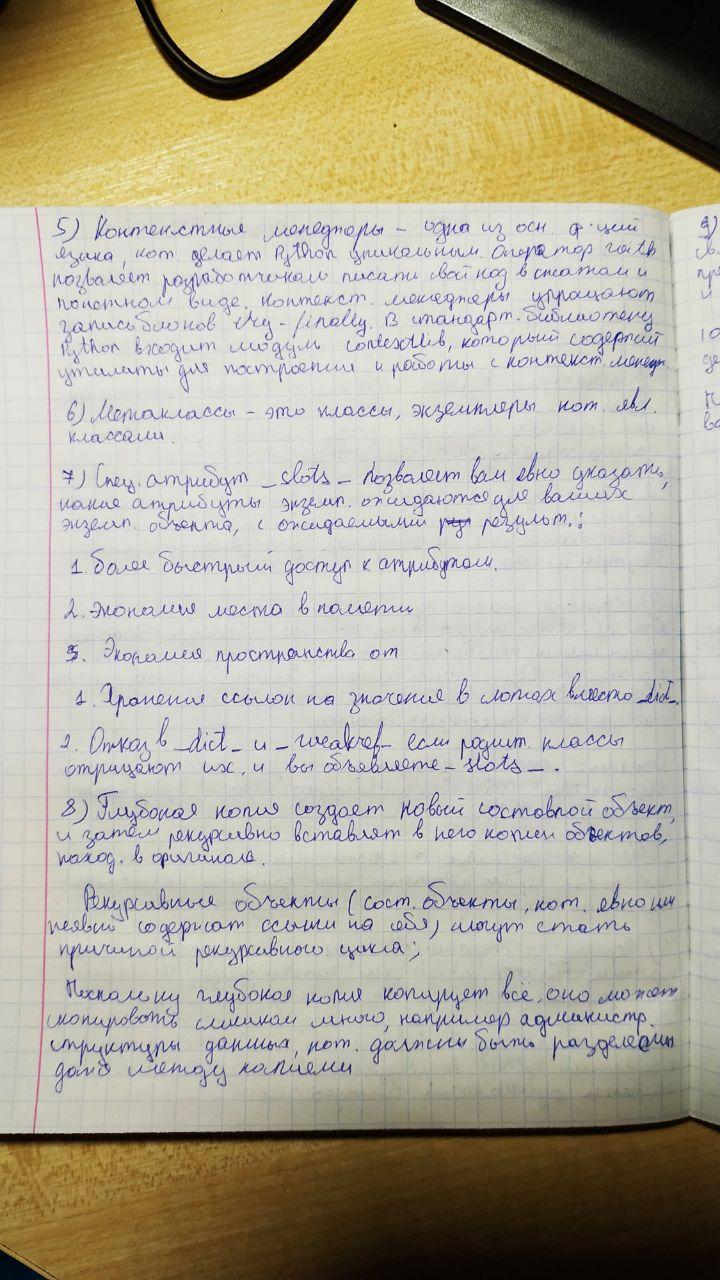 5) Контекстные менеджеры – одна из осн. ф-ций
языка, кот. делает Python уникальным. Оператор with
позволяет разработчикам писать свой код в сжатом и
понятном виде. Контекст. менеджеры упрощают
запись блоков try-finally. В стандарт. библиотеку
Python входит модуль contextlib, который содержит
утилиты для построения и работы с контекст. менедж.
6) Метаклассы – это классы, экземпляры кот. явл.
классами.
7) Спец. атрибут _slots_ позволяет вам явно указать,
какие атрибуты экземп. ожидаются для ваших
экземп. объекта, с ожидаемыми результ.:
1. Более быстрый доступ к атрибутам.
2. Экономия места в памяти
3. Экономия пространства от
1. Хранения ссылок на значения в слотах вместо _dict_.
2. Отказ в _dict_ и _weakref_ если родит. классы
отрицают их, и вы объявляете _slots_.
8) Глубокая копия создает новый составной объект,
и затем рекурсивно вставлят в него копии объектов,
наход. в оригинале.
Рекурсивные объекты (сост. объекты, кот. явно или
неявно содержат ссылки на себя) могут стать
причиной рекурсивного цикла;
Поскольку глубокая копия копирует всё, оно может
скопировать слишком много, например администр.
структуры данных, кот. должны быть разделены
даже между копиями
9)
10